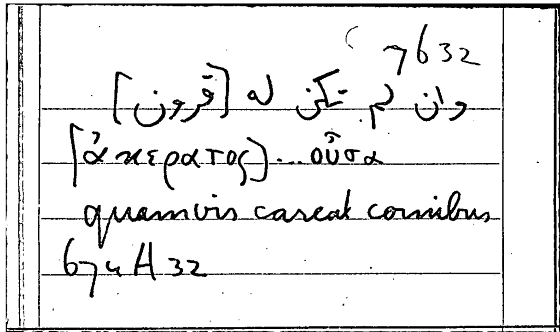 7632
وان لم تكن له [قرون]
[ἀκερατος]...οὖσα
quamvis careat cornibus
674 A 32